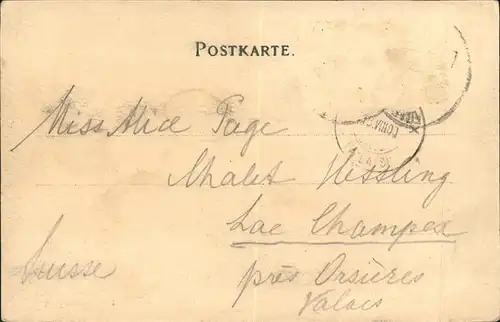 POSTKARTE.
Miss Alice Page
Chalet Hissling
Lac Champex
Suisse
près Orsières
Valais